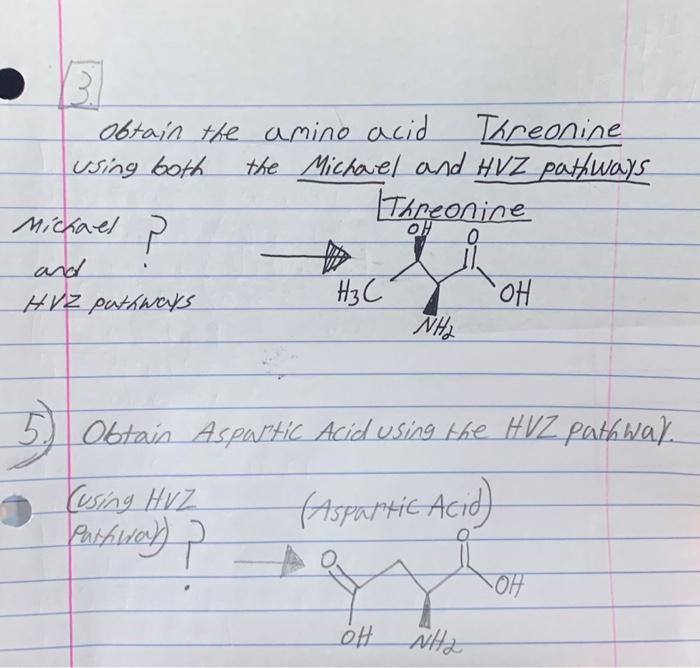 3.
Obtain the amino acid Threonine
using both the Michael and HVZ pathways
Threonine
Michael ?
and
HVZ pathways
OH
O
H3C
OH
NH2
5.) Obtain Aspartic Acid using the HVZ pathway.
(using HVZ
Pathway) ?
(Aspartic Acid)
O
O
OH
OH
NH2